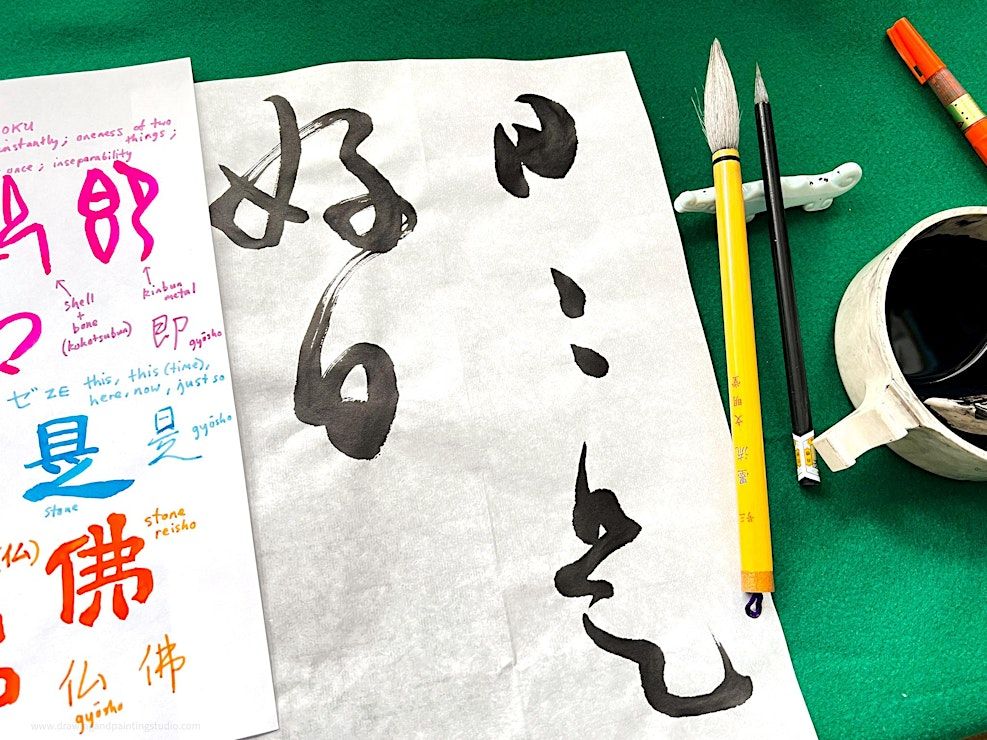 日〻是
好日
OKU
instantly; oneness of two
things;
once; inseparability
即
shell
+
bone
(kokotsubun)
kinbun
metal
即 gyōsho
ゼ ZE this, this (time),
here, now, just so
是
stone
是 gyōsho
(仏)
佛
stone
reisho
仏 佛
gyōsho
文明堂
墨流
www.drawingandpaintingstudio.com